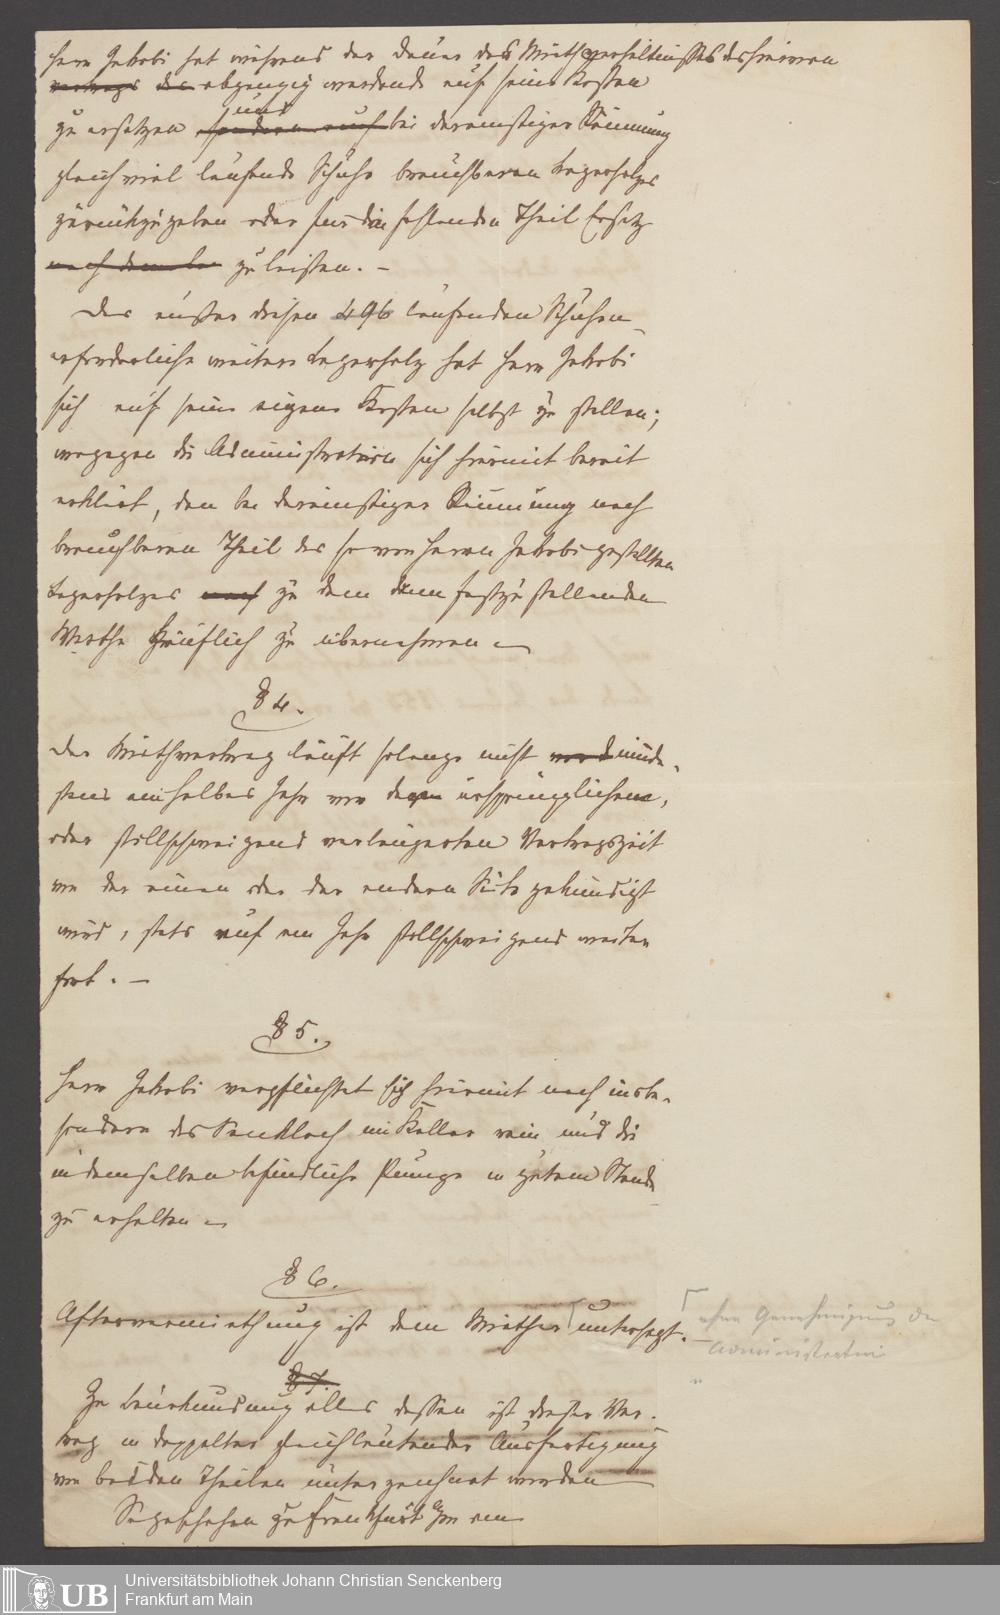 Herr Jakobi hat während der Dauer des Miethverhältnisses das hiervon
vertrags das abgängig werdende auf seine Kosten
zu ersetzen sondern auch und bei dereinstiger Räumung
gleich viel laufende Schuhe brauchbaren Lagerholzes
zurückzugeben oder für den fehlenden Theil Ersatz
nach dem zu leisten. –
Das außer diesen 496 laufenden Schuhen
erforderliche weitere Lagerholz hat Herr Jakobi
sich auf seine eigene Kosten selbst zu stellen;
wogegen die Administration sich hiermit bereit
erklärt, den bei dereinstiger Räumung noch
brauchbaren Theil des so von Herrn Jakobi gestellten
Lagerholzes nach zu dem dann festzustellenden
Werthe käuflich zu übernehmen
§ 4.
Der Miethvertrag läuft solange nicht minde-
stens ein halbes Jahr vor der ursprünglichen,
oder stillschweigend verlängerten Vertragszeit
von der einen oder der andern Seite gekündigt
wird, stets auf ein Jahr stillschweigend weiter
fort. –
§ 5.
Herr Jakobi verpflichtet sich hiermit noch insbe-
sondere das Senkloch im Keller rein und die
in demselben befindliche Pumpe in gutem Stande
zu erhalten
§ 6.
Aftervermiethung ist dem Miether untersagt.
ohne Genehmigung der
Administration
§ 7.
Zu Beurkundung alles dessen ist dieser Ver-
trag in doppelter gleichlautender Ausfertigung
von beiden Theilen unterzeichnet worden
So geschehen zu Frankfurt a/m am
UB
Universitätsbibliothek Johann Christian Senckenberg
Frankfurt am Main